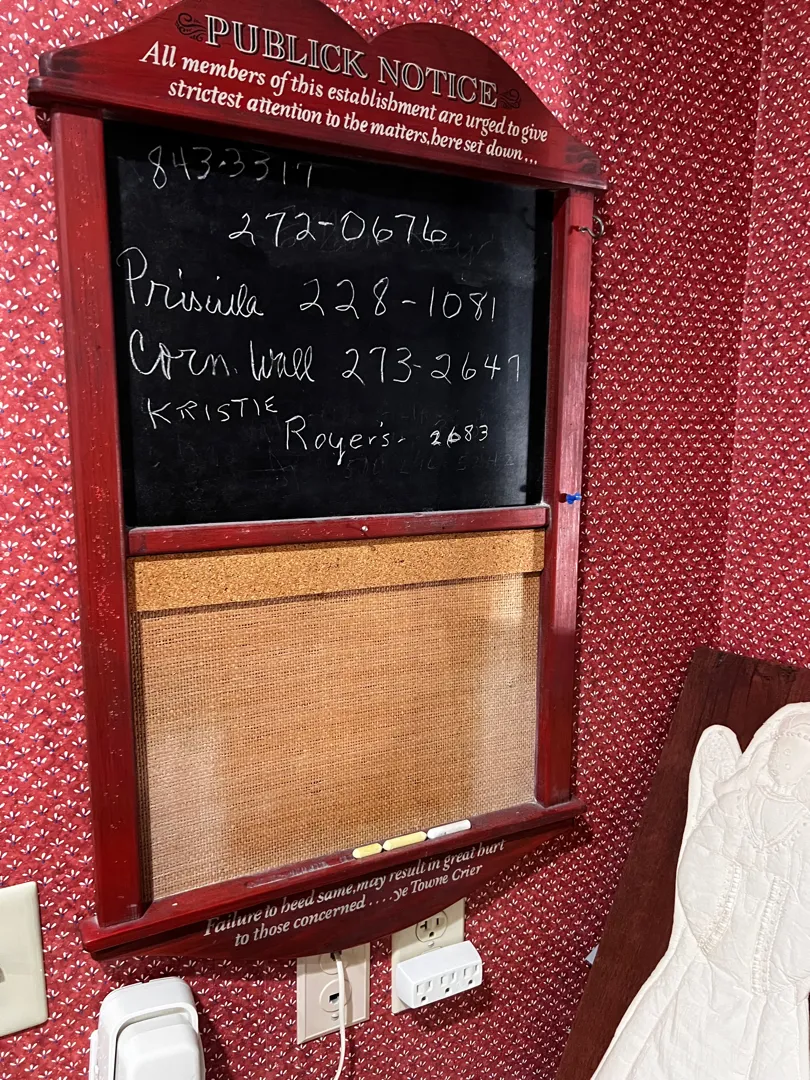 PUBLICK NOTICE
All members of this establishment are urged to give
strictest attention to the matters, here set down...
843-3317
272-0676
Prisicila 228-1081
Corn. Wall 273-2647
KRISTIE
Royer's- 2683
Failure to heed same, may result in great hurt
to those concerned .... ye Towne Crier